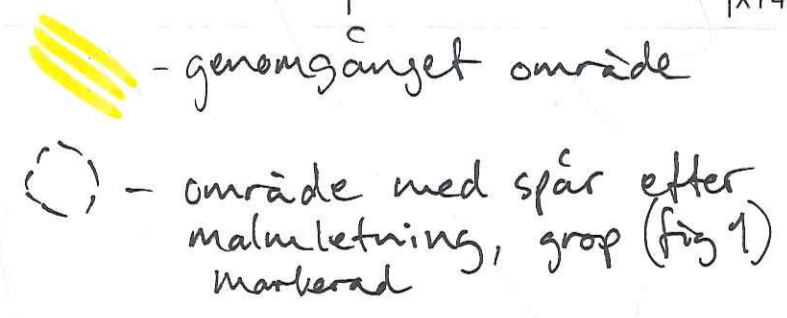 - genomgånget område
- område med spår efter
malmletning, grop (fig 1)
markerad